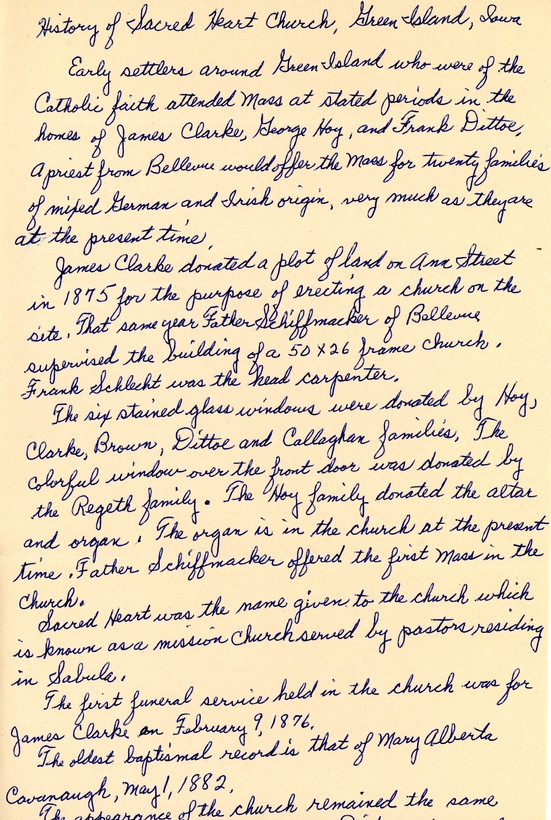 History of Sacred Heart Church, Green Island, Iowa
Early settlers around Green Island who were of the
Catholic faith attended Mass at stated periods in the
homes of James Clarke, George Hoy, and Frank Dittoe,
A priest from Bellevue would offer the Mass for twenty families
of mixed German and Irish origin, very much as they are
at the present time,
James Clarke donated a plot of land on Ann Street
in 1875 for the purpose of erecting a church on the
site. That same year Father Schiffmacker of Bellevue
supervised the building of a 50 x 26 frame church.
Frank Schlecht was the head carpenter.
The six stained glass windows were donated by Hoy,
Clarke, Brown, Dittoe and Callaghan families, The
colorful window over the front door was donated by
the Regeth family. The Hoy family donated the altar
and organ. The organ is in the church at the present
time. Father Schiffmacker offered the first Mass in the
church.
Sacred Heart was the name given to the church which
is known as a mission Church served by pastors residing
in Sabula.
The first funeral service held in the church was for
James Clarke on February 9, 1876.
The oldest baptismal record is that of Mary Alberta
Cavanaugh, May 1, 1882.
The appearance of the church remained the same